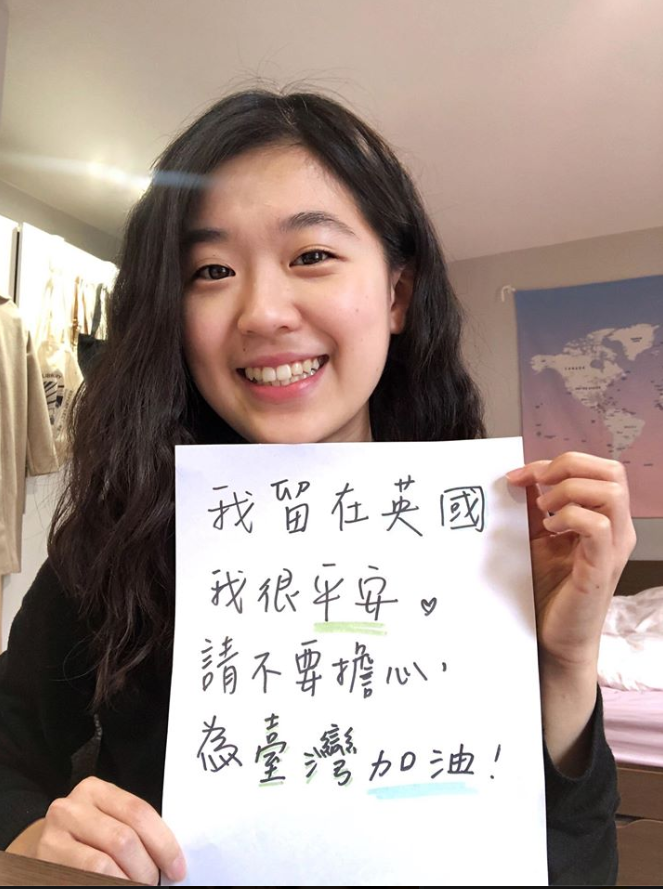 我留在英國
我很平安。
請不要擔心,
為臺灣加油!
CANADA